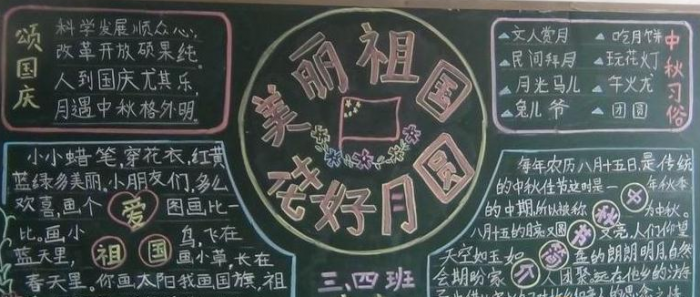 颂国庆
科学发展顺众心,
改革开放硕果纯。
人到国庆尤其乐,
月遇中秋格外明。
美丽祖国
花好月圆
中秋习俗
文人赏月
吃月饼
民间拜月
玩花灯
月光马儿
午火龙
兔儿爷
团圆
小小蜡笔,穿花衣,红黄
蓝绿多美丽,小朋友们,多么
欢喜,画个 图画比一
比。画小 鸟,飞在
蓝天里, 画小草,长在
春天里。你画太阳我画国旗,祖
爱
祖国
三、四班
每年农历八月十五日,是传统
的中秋佳节这时是一年秋季
的中期,所以被称为中秋。
八月十五的月亮又圆又亮,人们仰望
天空如玉如 的朗朗明月自然
会期盼家人团聚远在他乡的游
中秋节